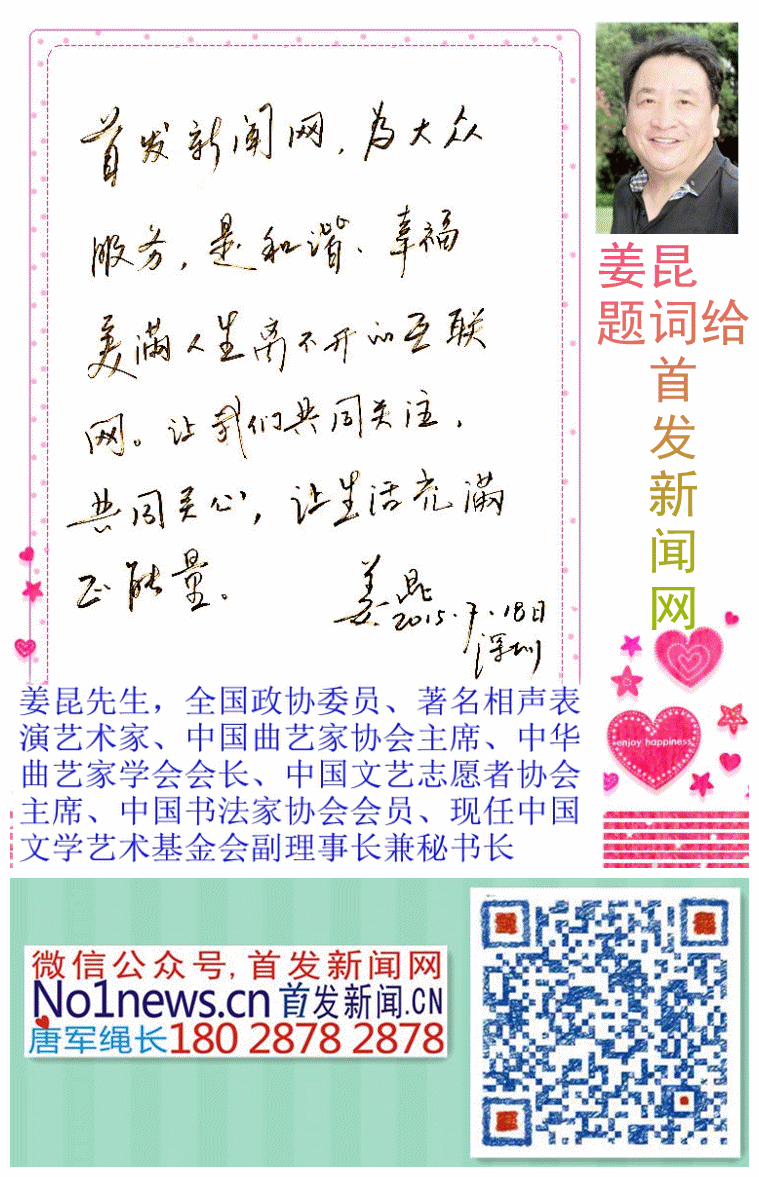 首发新闻网，为大众
服务，是和谐、幸福
美满人生离不开的互联
网。让我们共同关注，
共同关心，让生活充满
正能量。
姜昆
2015.7.18日
深圳
姜昆
题词给
首
发
新
闻
网
enjoy happiness
姜昆先生，全国政协委员、著名相声表
演艺术家、中国曲艺家协会主席、中华
曲艺家学会会长、中国文艺志愿者协会
主席、中国书法家协会会员、现任中国
文学艺术基金会副理事长兼秘书长
微信公众号,首发新闻网
No1news.cn 首发新闻.CN
唐军绳长180 2878 2878